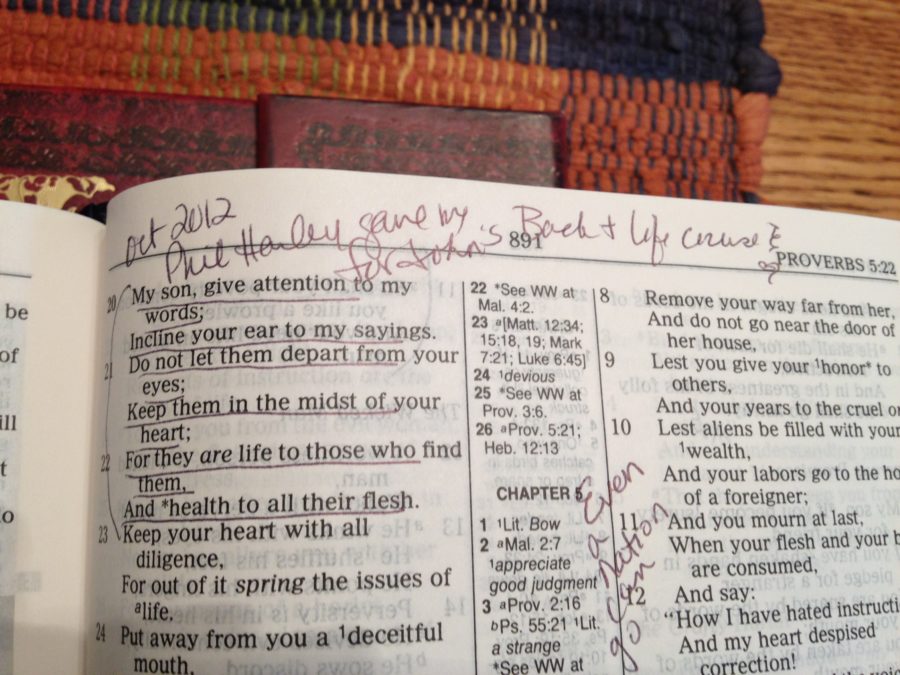 oct 2012
Phil Hanley gave my
for John's Back + life
891
PROVERBS 5:22
20 My son, give attention to my
words;
Incline your ear to my sayings.
21 Do not let them depart from your
eyes;
Keep them in the midst of your
heart;
22 For they are life to those who find
them,
And *health to all their flesh.
23 Keep your heart with all
diligence,
For out of it spring the issues of
ᵃlife.
24 Put away from you a ¹deceitful
mouth,
22 *See WW at
Mal. 4:2.
23 ᵃ[Matt. 12:34;
15:18, 19; Mark
7:21; Luke 6:45]
24 ¹devious
25 *See WW at
Prov. 3:6.
26 ᵃProv. 5:21;
Heb. 12:13
CHAPTER 5
1 ¹Lit. Bow
2 ᵃMal. 2:7
¹appreciate
good judgment
3 ᵃProv. 2:16
ᵇPs. 55:21 ¹Lit.
a strange
*See WW at
Even
a
nation
can
go
8 Remove your way far from her,
And do not go near the door of
her house,
9 Lest you give your ¹honor* to
others,
And your years to the cruel
10 Lest aliens be filled with your
¹wealth,
And your labors go to the
of a foreigner;
11 And you mourn at last,
When your flesh and your
are consumed,
12 And say:
"How I have hated
And my heart despised
correction!
be
of